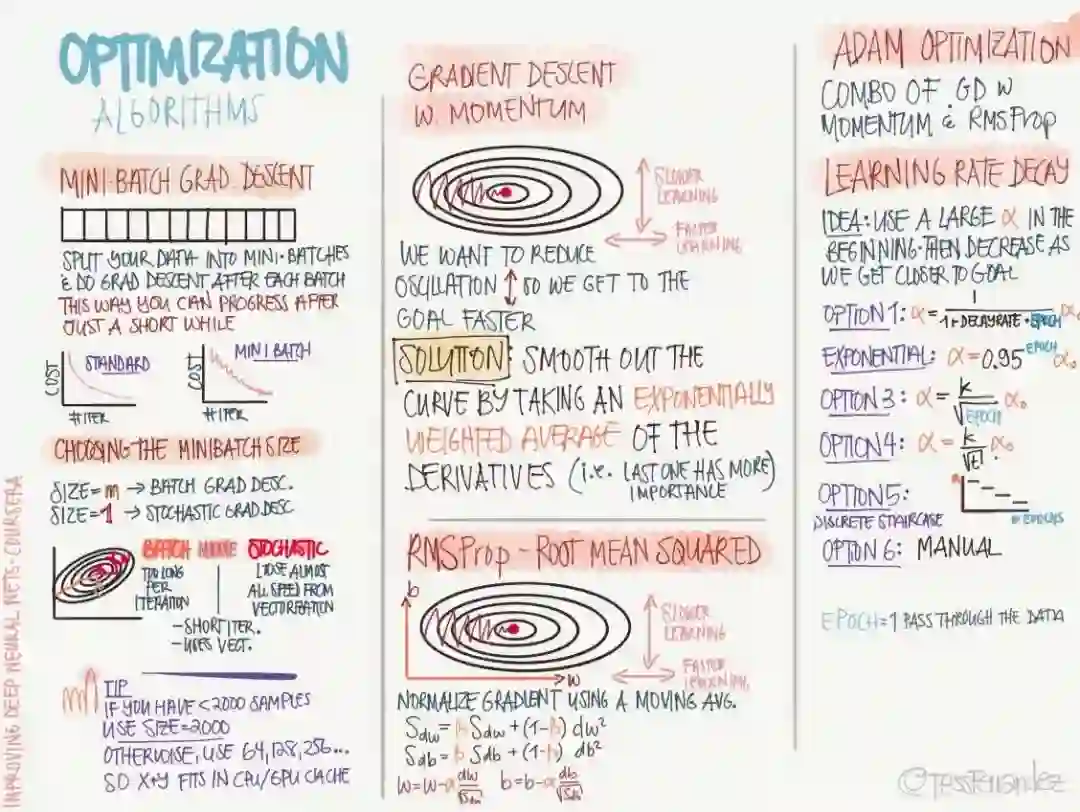 OPTIMIZATION
ALGORITHMS
MINI-BATCH GRAD. DESCENT
SPLIT YOUR DATA INTO MINI-BATCHES
& DO GRAD DESCENT AFTER EACH BATCH
THIS WAY YOU CAN PROGRESS AFTER
JUST A SHORT WHILE
COST
STANDARD
# ITER
COST
MINI BATCH
# ITER
CHOOSING THE MINIBATCH SIZE
SIZE=m → BATCH GRAD DESC.
SIZE=1 → STOCHASTIC GRAD.DESC
BATCH
TOO LONG
PER
ITERATION
STOCHASTIC
LOSE ALMOST
ALL SPEED FROM
VECTORIZATION
-SHORT ITER.
-USES VECT.
TIP
IF YOU HAVE <2000 SAMPLES
USE SIZE=2000
OTHERWISE, USE 64,128,256...
SO X+Y FITS IN CPU/GPU CACHE
IMPROVING DEEP NEURAL NETS · COURSERA
GRADIENT DESCENT
W. MOMENTUM
SLOWER
LEARNING
FASTER
LEARNING
WE WANT TO REDUCE
OSCILLATION ↕ SO WE GET TO THE
GOAL FASTER
SOLUTION: SMOOTH OUT THE
CURVE BY TAKING AN EXPONENTIALLY
WEIGHTED AVERAGE OF THE
DERIVATIVES (i.e. LAST ONE HAS MORE)
IMPORTANCE
RMSProp - ROOT MEAN SQUARED
b
SLOWER
LEARNING
FASTER
LEARNING
w
NORMALIZE GRADIENT USING A MOVING AVG.
Sdw = β Sdw + (1-β) dw²
Sdb = β Sdb + (1-β) db²
w=w-α dw/√Sdw b=b-α db/√Sdb
ADAM OPTIMIZATION
COMBO OF GD W
MOMENTUM & RMSProp
LEARNING RATE DECAY
IDEA: USE A LARGE α IN THE
BEGINNING-THEN DECREASE AS
WE GET CLOSER TO GOAL
OPTION 1: α = 1/(1+DECAYRATE·EPOCH) α₀
EXPONENTIAL: α=0.95^EPOCH α₀
OPTION 3: α = k/√EPOCH α₀
OPTION 4: α = k/√t · α₀
OPTION 5:
DISCRETE STAIRCASE
α
# EPOCHS
OPTION 6: MANUAL
EPOCH=1 PASS THROUGH THE DATA
©TessFerrandez